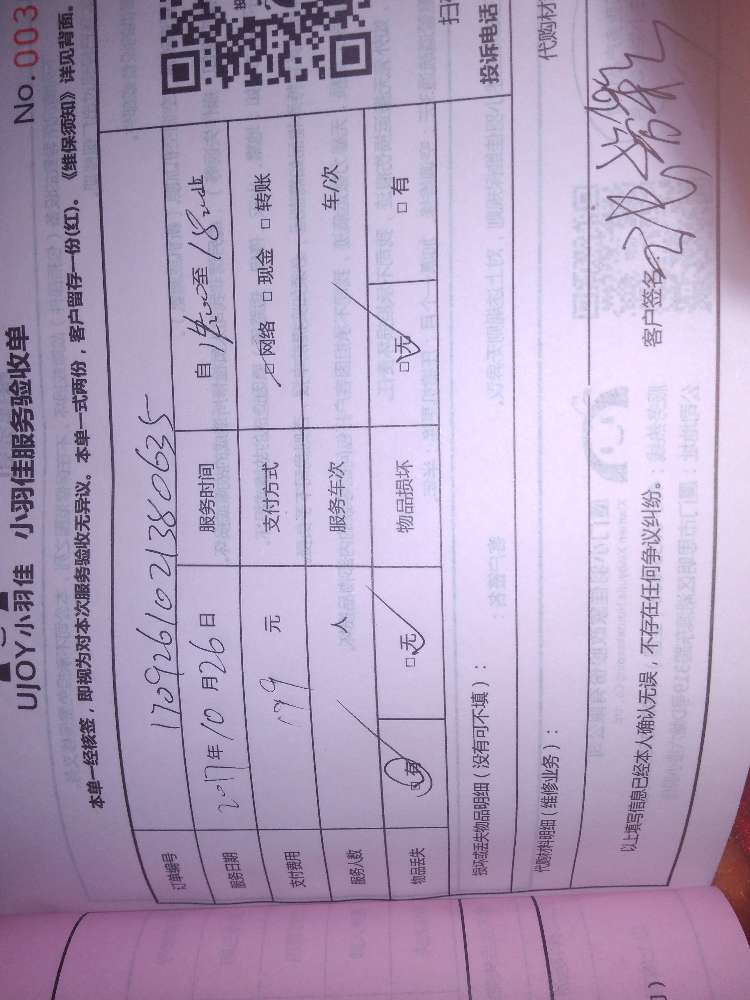 No.003
UJOY小羽佳 小羽佳服务验收单
本单一经核签，即视为对本次服务验收无异议。本单一式两份，客户留存一份(红)。《维保须知》详见背面。
订单编号 1709261021380635
服务日期 2017年10月26日 服务时间 自14:00至18:00止
支付费用 199元 支付方式 □网络 □现金 □转账
服务人数 人 服务车次 车/次
物品丢失 □有 □无 物品损坏 □无 □有
损坏或丢失物品明细（没有可不填）：
代购材料明细（维修业务）：
代购材
以上填写信息已经本人确认无误，不存在任何争议纠纷。
客户签名
投诉电话
扫